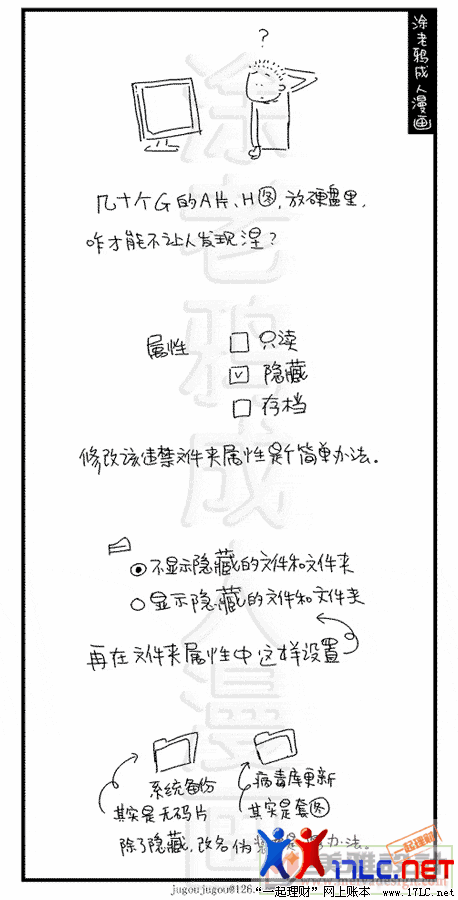 涂老鸦成人漫画
?
几十个G的A片、H图,放硬盘里,
咋才能不让人发现涅?
属性 只读
隐藏
存档
修改该违禁文件夹属性是个简单办法.
不显示隐藏的文件和文件夹
显示隐藏的文件和文件夹
再在文件夹属性中这样设置
系统备份 病毒库更新
其实是无码片 其实是套图
除了隐藏,改名伪 办法.
涂老鸦成人漫画
一起理财
17LC.net
jugoujugou@126.
"一起理财"网上账本 www.17LC.net